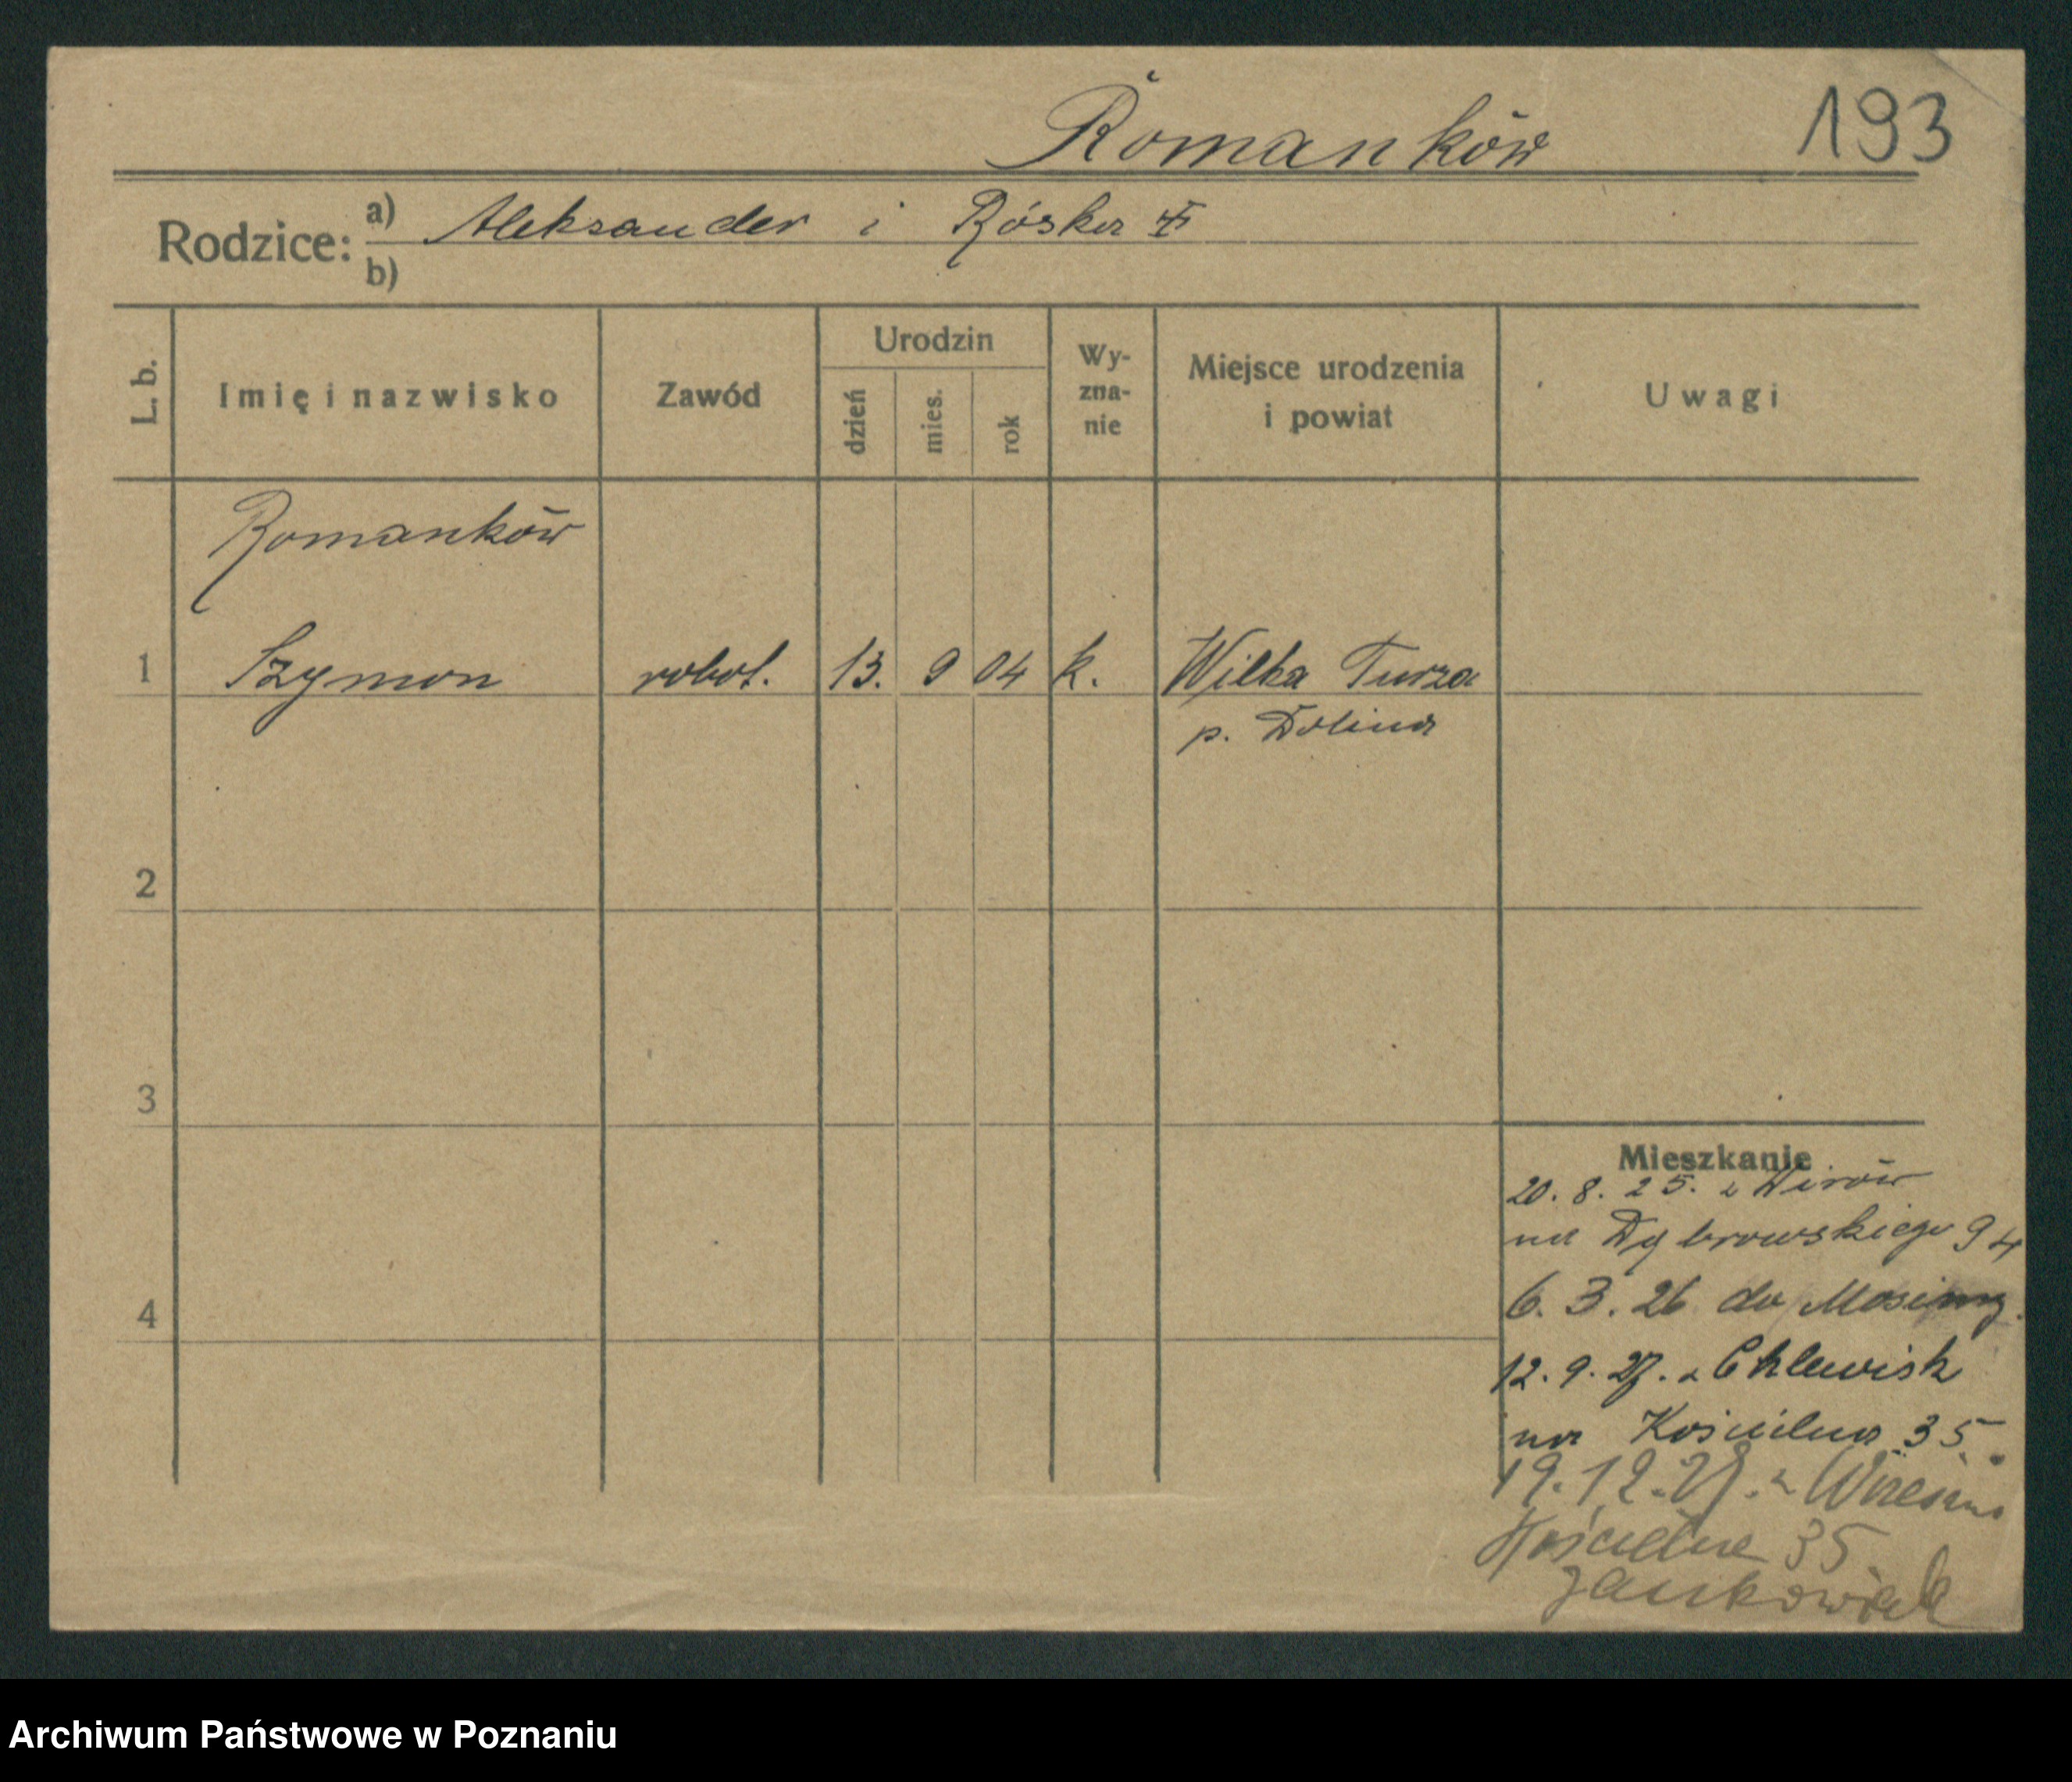 Romanków
193
Rodzice: a) Aleksander i Róska
b)
L. b.
Imię i nazwisko
Zawód
Urodzin
dzień
mies.
rok
Wy-
zna-
nie
Miejsce urodzenia
i powiat
Uwagi
Romanków
1 Szymon robot. 13. 9 04 k. Wilka Turza
p. Dolina
2
3
4
Mieszkanie
20. 8. 25. z Wirów
na Dąbrowskiego 94
6. 3. 26 do Mosiny.
12. 9. 27. z Chlewisk
na Kościelna 35.
19. 12. z
Kościelna 35
Jankowiak
Archiwum Państwowe w Poznaniu